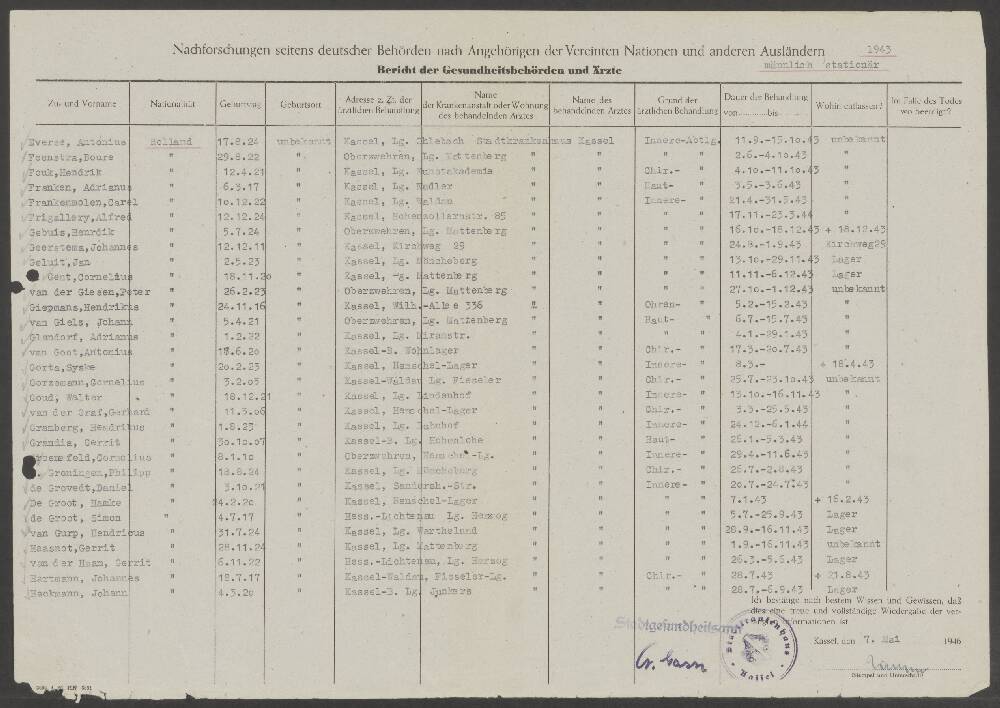 Nachforschungen seitens deutscher Behörden nach Angehörigen der Vereinten Nationen und anderen Ausländern 1943
Bericht der Gesundheitsbehörden und Ärzte männlich stationär
Zu- und Vorname Nationalität Geburtstag Geburtsort Adresse z. Zt. der ärztlichen Behandlung Name der Krankenanstalt oder Wohnung des behandelnden Arztes Name des behandelnden Arztes Grund der ärztlichen Behandlung Dauer der Behandlung von bis Wohin entlassen? Im Falle des Todes wo beerdigt?
Antonius Holland 17.8.24 unbekannt Kassel, Lg. Stadtkrankenhaus Kassel Innere-Abtlg. 11.9.-15.10.43 unbekannt
Feenstra,Boure " 29.8.22 " Oberzwehren, Lg. Mattenberg " " " 2.6.-4.10.43 "
Fouk,Hendrik " 12.4.21 " Kassel, Lg. Kunstakademie " " Chir.- " 4.10.-11.10.43 "
Franken, Adrianus " 6.3.17 " Kassel, Lg. " " Haut- " 3.5.-3.6.43 "
Frankenmolen,Carel " 10.12.22 " Kassel, Lg. Waldau " " Innere- " 21.4.-31.5.43 "
Frigallery,Alfred " 12.12.24 " Kassel, Hohenzollernstr. 85 " " " 17.11.-23.3.44 "
Gebuis,Henrdik " 5.7.24 " Oberzwehren, Lg. Mattenberg " " " 16.10.-18.12.43 + 18.12.43
Geerstema,Johannes " 12.12.11 " Kassel, Kirchweg 29 " " " 24.8.-1.9.43 Kirchweg29
Geluit,Jan " 2.5.23 " Kassel, Lg. Müncheberg " " " 13.10.-29.11.43 Lager
Gent,Cornelius " 18.11.20 " Kassel, Lg. Mattenberg " " " 11.11.-6.12.43 Lager
van der Giesen,Peter " 26.2.23 " Oberzwehren, Lg. Mattenberg " " " 27.10.-1.12.43 unbekannt
Giepmans,Hendrikus " 24.11.16 " Kassel, Wilh.-Allee 336 " " Ohren- " 5.2.-15.2.43 "
van Giels, Johann " 5.4.21 " Oberzwehren, Lg. Mattenberg " " Haut- " 6.7.-15.7.43 "
Glandorf, Adrianus " 1.2.22 " Kassel, Lg. " " " 4.1.-29.1.43 "
van Gont,Antonius " 18.6.20 " Kassel-B. Wohnlager " " Chir.- " 17.3.-20.7.43 "
Gorta,Syske " 20.2.23 " Kassel, Henschel-Lager " " Innere- " 8.3.- + 18.4.43
Gorzemann,Cornelius " 3.2.05 " Kassel-Waldau Lg. Fieseler " " Chir.- " 25.7.-23.10.43 unbekannt
Goud, Walter " 18.12.21 " Kassel, Lg. Lindenhof " " Innere- " 13.10.-16.11.43 "
van der Graf,Gerhard " 11.3.06 " Kassel, Henschel-Lager " " Chir.- " 3.3.-25.5.43 "
Gramberg, Hendrikus " 1.8.23 " Kassel, Lg. " " Innere- " 24.12.-6.1.44 "
Grandia, Gerrit " 30.10.07 " Kassel-B. Lg. Hohenlohe " " Haut- " 26.1.-5.3.43 "
Cornelius " 8.1.10 " Oberzwehren, Henschel-Lg. " " Innere- " 29.4.-11.6.43 "
Groningen,Philipp " 18.8.24 " Kassel, Lg. Müncheberg " " Chir.- " 26.7.-2.8.43 "
de Grovedt,Daniel " 3.10.21 " Kassel, Sandersh.-Str. " " Innere- " 20.7.-24.7.43 "
De Groot, Hamke " 14.2.20 " Kassel, Henschel-Lager " " " 7.1.43 + 16.2.43
de Groot, Simon " 4.7.17 " Hess.-Lichtenau Lg. Herzog " " " 5.7.-25.8.43 Lager
van Gurp, Hendricus " 31.7.24 " Kassel, Lg. " " " 28.9.-16.11.43 Lager
Haasnot,Gerrit " 28.11.24 " Kassel, Lg. Mattenberg " " " 1.9.-16.11.43 unbekannt
van der Haan, Gerrit " 6.11.22 " Hess.-Lichtenau, Lg. Herzog " " " 26.3.-9.6.43 Lager
Hartmann, Johannes " 18.7.17 " Kassel-Waldau, Fieseler-Lg. " " Chir.- " 28.7.43 + 21.8.43
Heckmann, Johann " 4.3.20 " Kassel-B. Lg. Junkers " " " 28.7.-6.9.43 Lager
Ich bestätige nach bestem Wissen und Gewissen, daß
dies eine treue und vollständige Wiedergabe der ver-
Informationen ist
Stadtgesundheitsamt
Stadtkrankenhaus Kassel
Kassel, den 7. Mai 1946
(Stempel und Unterschrift)